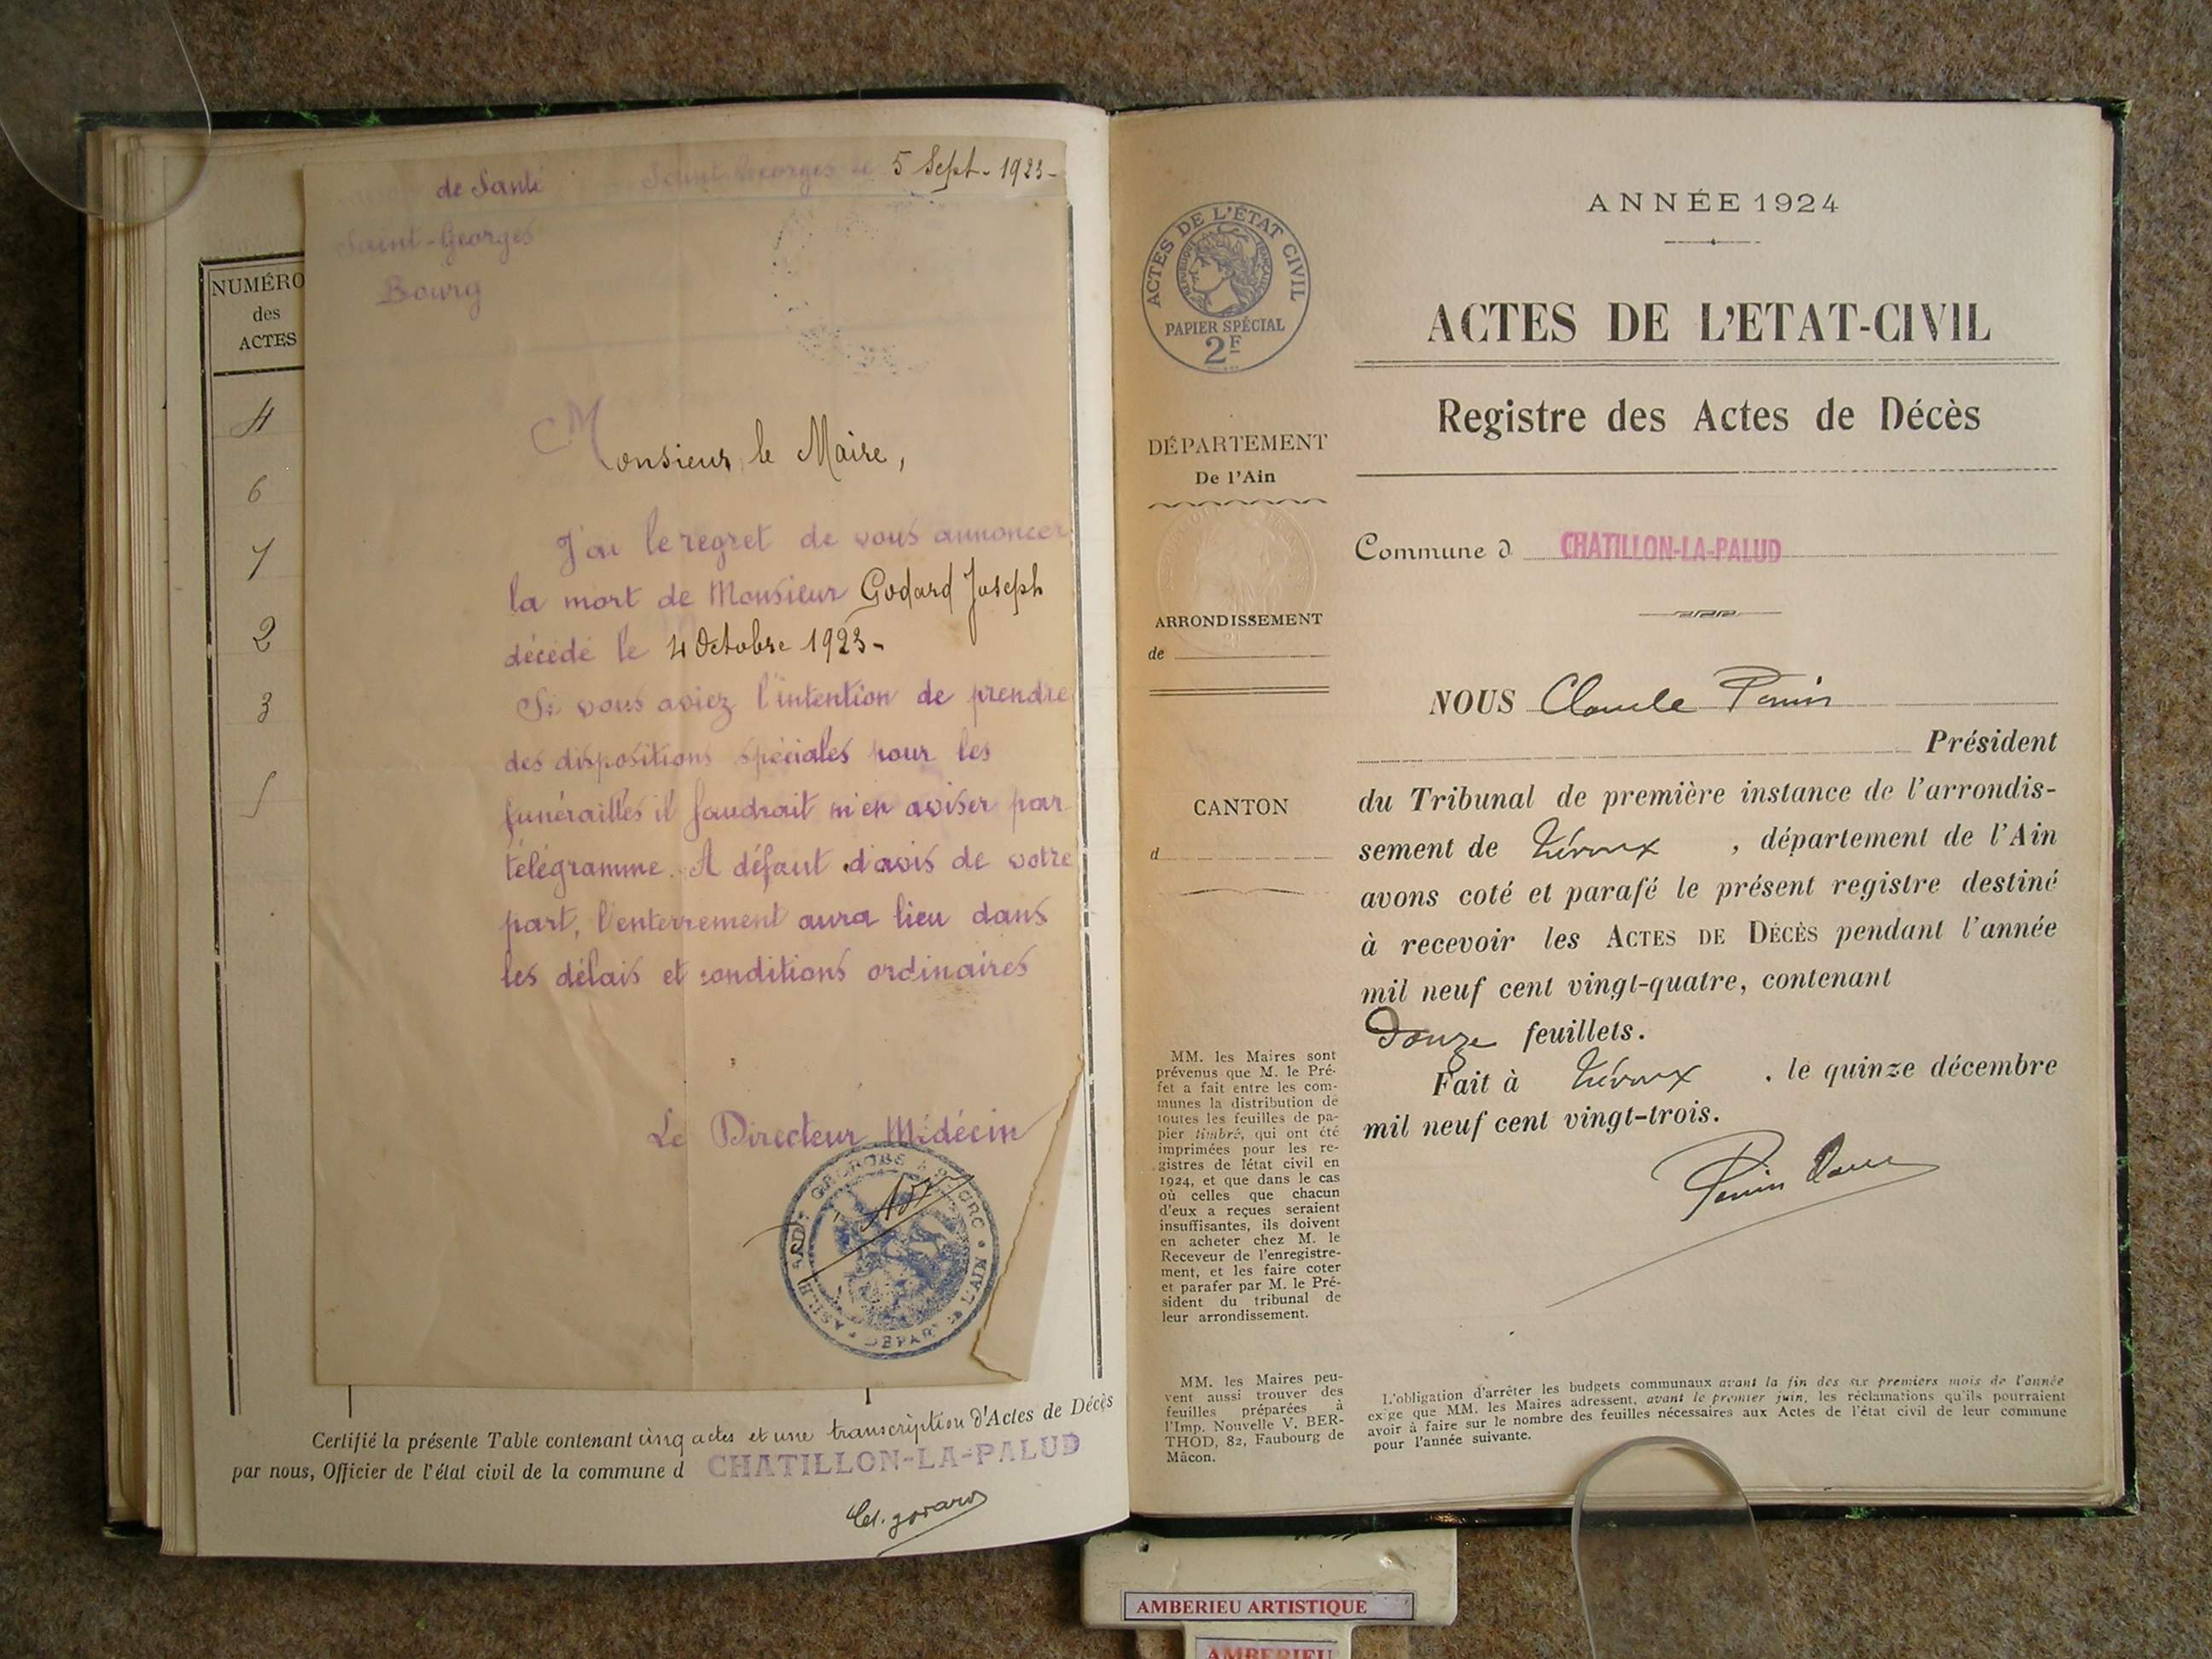 de Santé
Saint-Georges
Bourg
Saint-Georges le 5 Sept. 1923-
NUMÉRO
des
ACTES
4
6
7
2
3
5
Monsieur le Maire,
J'ai le regret de vous annoncer
la mort de Monsieur Godard Joseph
décédé le 4 Octobre 1923-
Si vous aviez l'intention de prendre
des dispositions spéciales pour les
funérailles il faudrait m'en aviser par
télégramme. A défaut d'avis de votre
part, l'enterrement aura lieu dans
les délais et conditions ordinaires
Le Directeur Médécin
Certifié la présente Table contenant cinq actes et une transcription d'Actes de Décès
par nous, Officier de l'état civil de la commune d CHATILLON-LA-PALUD
ANNÉE 1924
ACTES DE L'ÉTAT CIVIL
RÉPUBLIQUE FRANÇAISE
PAPIER SPÉCIAL
2F
ACTES DE L'ETAT-CIVIL
Registre des Actes de Décès
DÉPARTEMENT
De l'Ain
Commune d CHATILLON-LA-PALUD
ARRONDISSEMENT
de
CANTON
d
NOUS Claude Perrin
Président
du Tribunal de première instance de l'arrondis-
sement de Trévoux , département de l'Ain
avons coté et parafé le présent registre destiné
à recevoir les ACTES DE DÉCÈS pendant l'année
mil neuf cent vingt-quatre, contenant
Douze feuillets.
Fait à Trévoux , le quinze décembre
mil neuf cent vingt-trois.
MM. les Maires sont
prévenus que M. le Pré-
fet a fait entre les com-
munes la distribution de
toutes les feuilles de pa-
pier timbré, qui ont été
imprimées pour les re-
gistres de létat civil en
1924, et que dans le cas
où celles que chacun
d'eux a reçues seraient
insuffisantes, ils doivent
en acheter chez M. le
Receveur de l'enregistre-
ment, et les faire coter
et parafer par M. le Pré-
sident du tribunal de
leur arrondissement.
MM. les Maires peu-
vent aussi trouver des
feuilles préparées à
l'Imp. Nouvelle V. BER-
THOD, 82, Faubourg de
Mâcon.
L'obligation d'arrêter les budgets communaux avant la fin des six premiers mois de l'année
exige que MM. les Maires adressent, avant le premier juin, les réclamations qu'ils pourraient
avoir à faire sur le nombre des feuilles nécessaires aux Actes de l'état civil de leur commune
pour l'année suivante.
AMBERIEU ARTISTIQUE
AMBERIEU